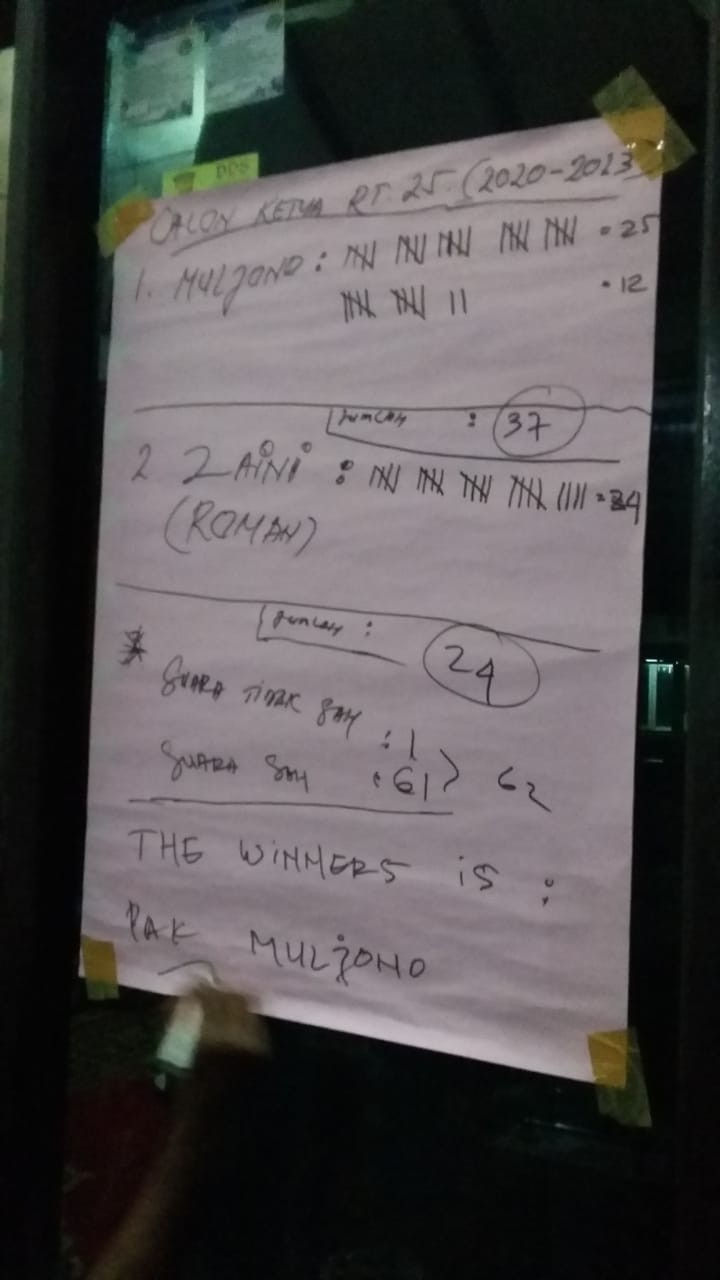 DDS
CALON KETUA RT. 25. (2020-2023)
1. MULJONO : = 25
= 12
JUMLAH : 37
2 ZAINI : = 24
(ROMAN)
JUMLAH : 24
* SUARA TIDAK SAH : 1
SUARA SAH : 61 > 62
THE WINNERS iS :
PAK MULJONO